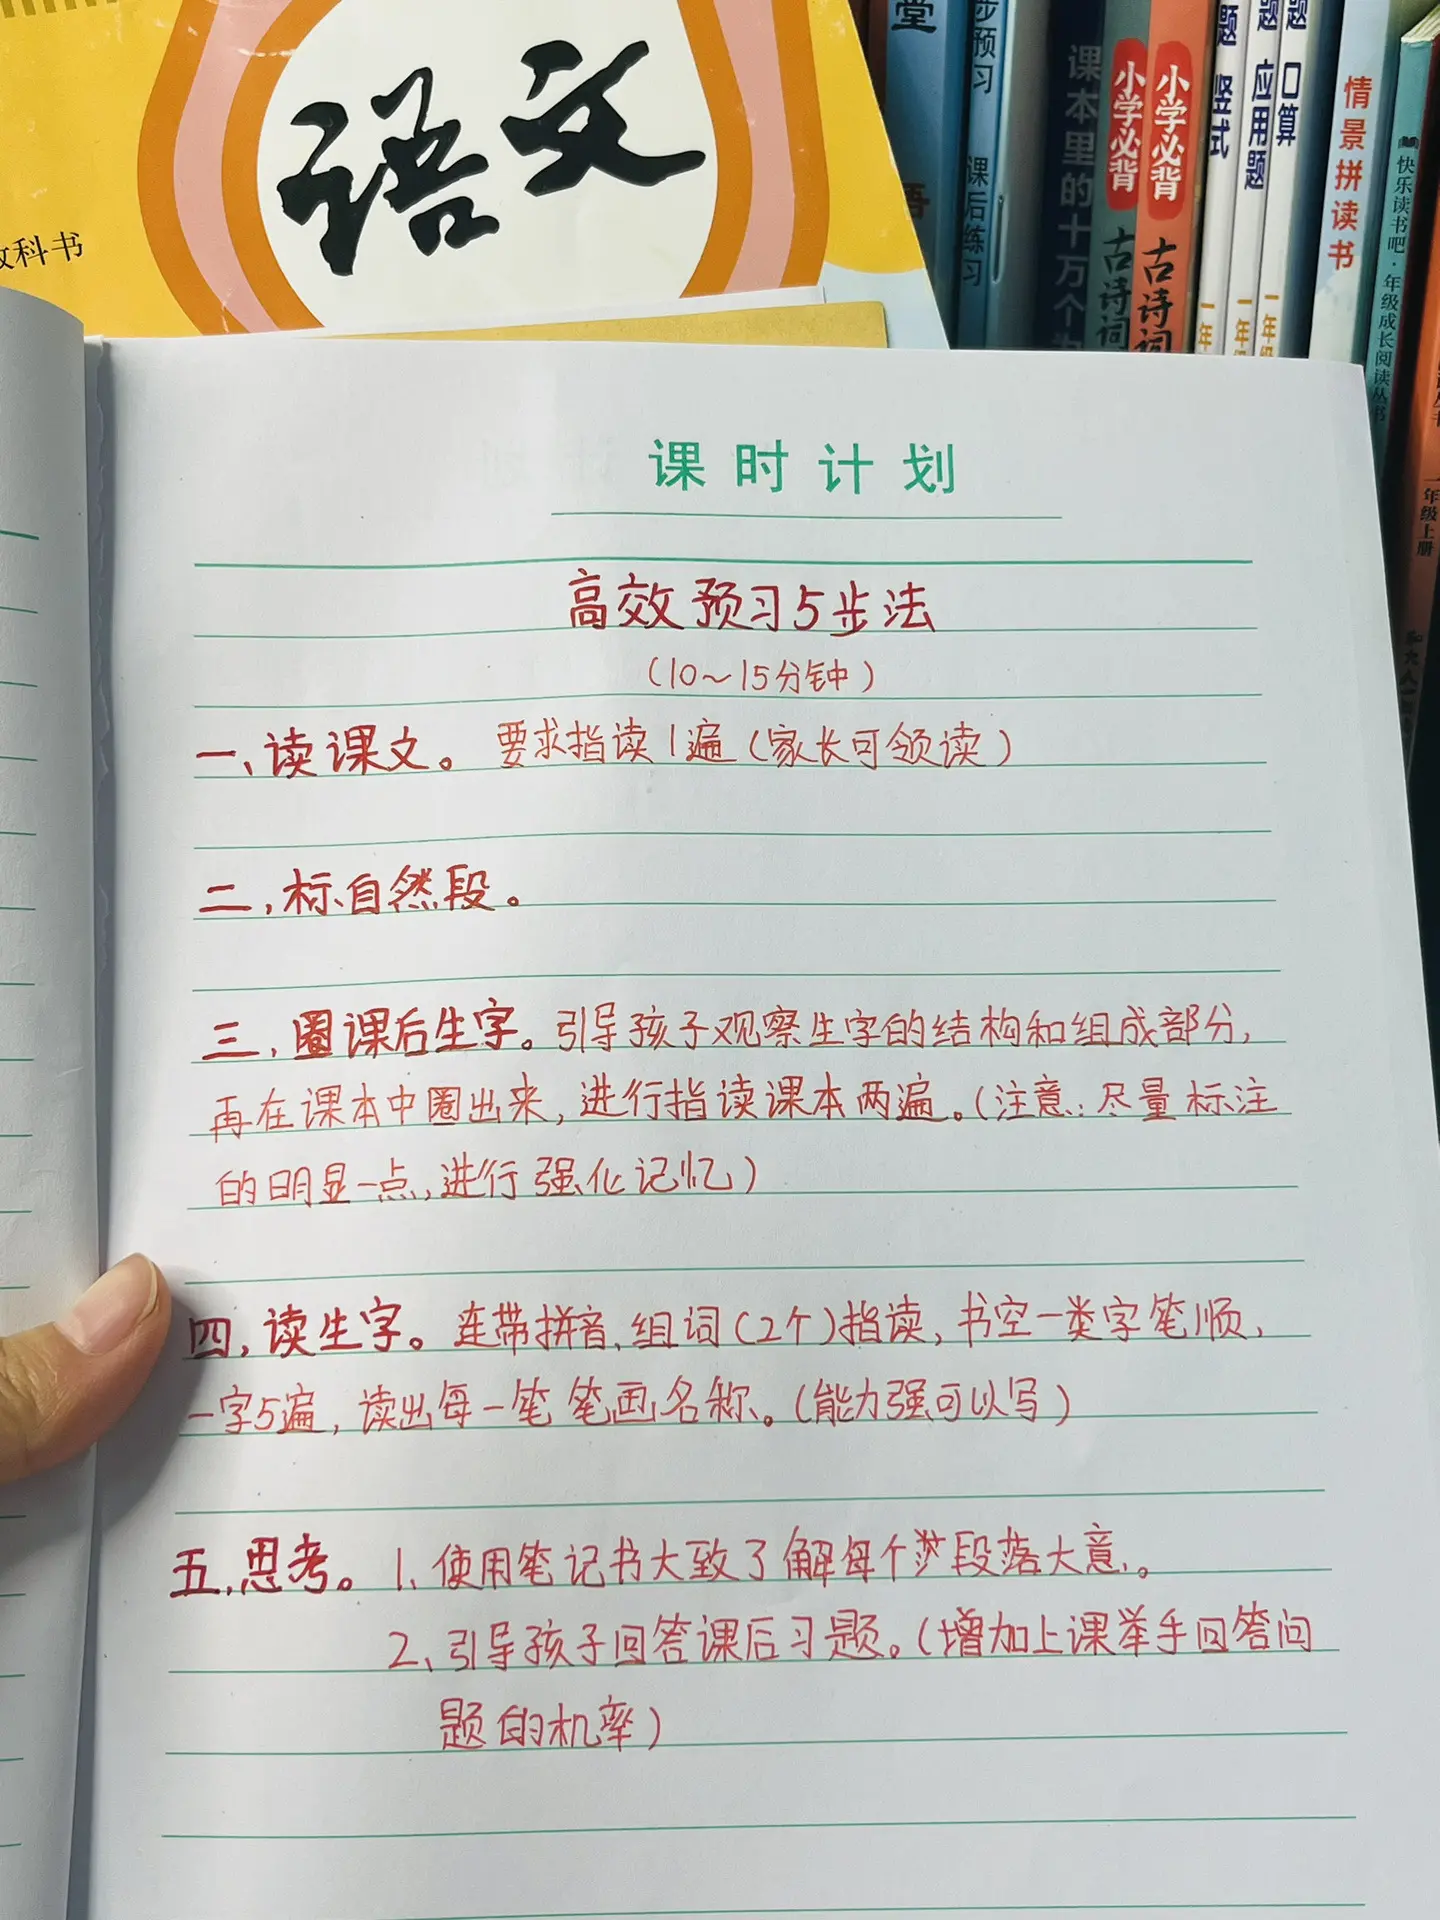 语文
教科书
堂
步预习
课后练习
课本里的十万个为
小学必背
古诗词
小学必背
古诗词
题
竖式
一年
题
应用题
一年级
题
口算
一年级
情景拼读书
快乐读书吧·年级成长阅读丛书
一年级上册
和大人一
课时计划
高效预习5步法
(10~15分钟)
一、读课文。要求指读1遍(家长可领读)
二,标自然段。
三,圈课后生字。引导孩子观察生字的结构和组成部分,
再在课本中圈出来,进行指读课本两遍。(注意:尽量标注
的明显一点,进行强化记忆)
四,读生字。连带拼音,组词(2个)指读,书空一类字笔顺,
一字5遍,读出每一笔笔画名称。(能力强可以写)
五,思考。1、使用笔记书大致了解每个段落大意。
2、引导孩子回答课后习题。(增加上课举手回答问
题的机率)